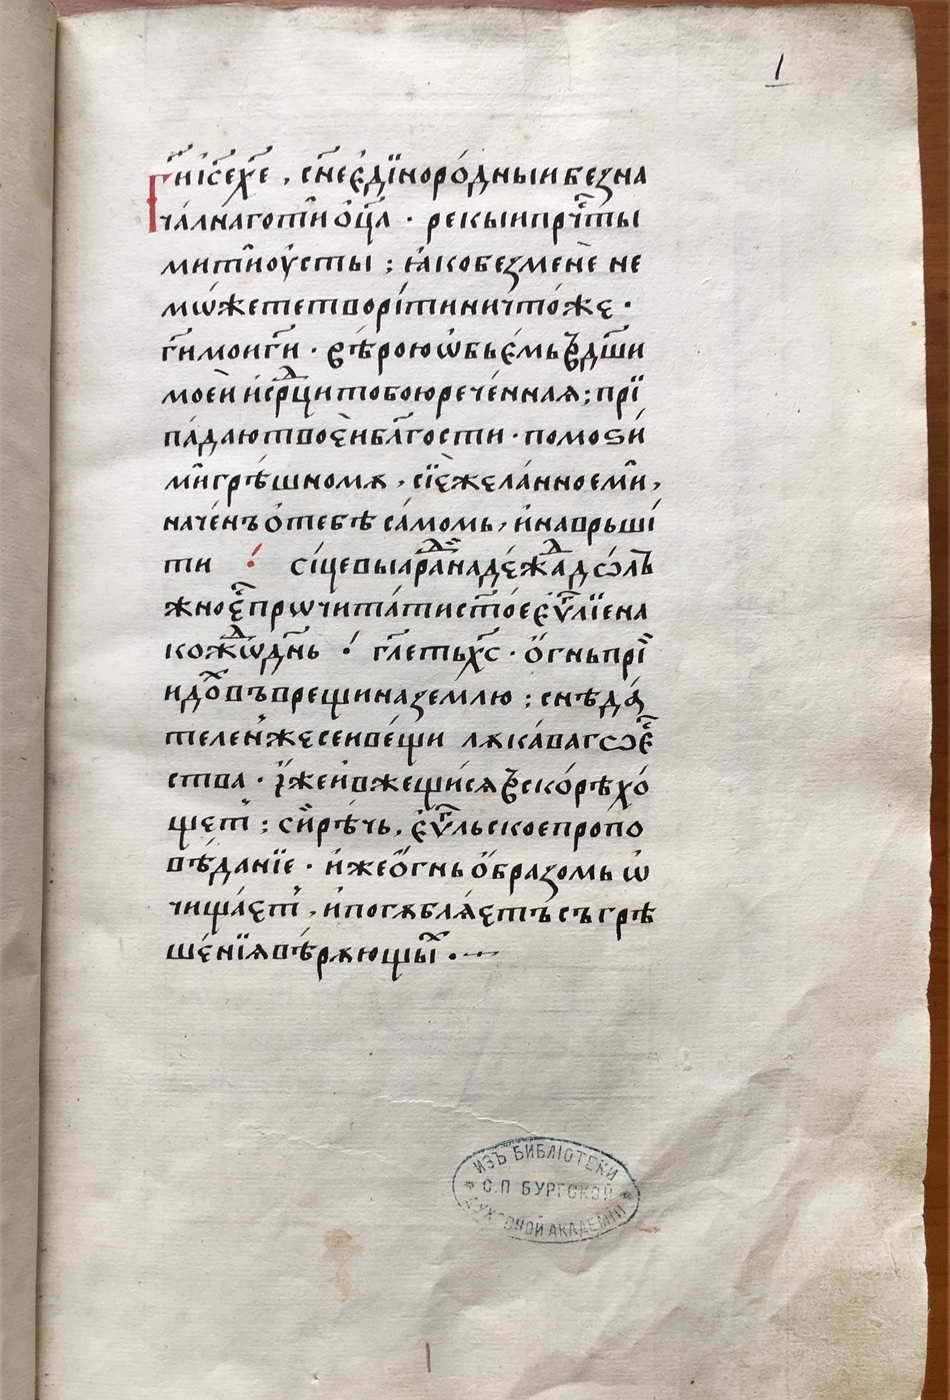 1
Г҃и іс҃е х҃е , сн҃е є҆дїноро́дныи безна
ча́лнаго ти ѡ҆ц҃а · рекыи прч҇ты
ми ти оу҆сты ; ꙗ҆ко безменѐ не
мѡ́жете творі́ти ничто́же ·
гд҇и мои гд҇и · вѣ́рою ѡ҆бье́мь в дш҃и
мое́й и҆ срⷣци тобою рече́ннаꙗ ; прї
па́даю твоѐи бл҃гости · помоѕѝ
ми грѣ́шномꙋ , сїѐ жела́нное ми ,
наче́нъ о҆ тебѣ̀ са́момь , и҆ наврьші́
ти ⁝ сі́цевыа раⷣ наде́жаⷣ дѡл
жно є҆сⷭ прѡчита́ти ст҃о́е є҆ѵⷢ҇лїе на
кожⷣѡ дн҃ь ⁝ гл҃еть хс҃ · ѻ҆́гнь прїи
идоⷯ въврещи на землю ; снѣда́
телен же сеи ве́щи лꙋка́ваго є҆
ства · і҆́же и҆ в жещи́сѧ въскорѣ хо́
щет ; си́рѣчь , є҆ѵⷢ҇льское пропо
вѣ́данїе · и҆́же ѻ҆́гнь ѻ҆́бразомь ѡ҆
чища́ет , и҆ погꙋблѧ́етъ съгрѣ
ше́нїѧ вѣ́рꙋющыⷯ ·
ИЗЪ БИБЛІОТЕКИ
С.П БУРГСКОЙ
ДУХОВНОЙ АКАДЕМІИ